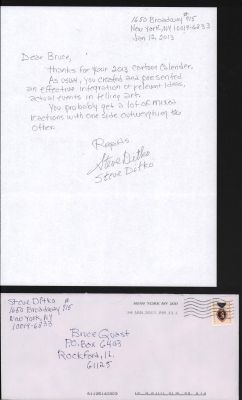 1650 Broadway #715
New York, NY 10019-6833
Jan 12, 2013
Dear Bruce,
Thanks for your 2013 cartoon Calender.
As usual, you created and presented
an effective integration of relevant ideas,
actual events in telling art.
You probably get a lot of mixed
reactions with one side outweighing the
other.
Regards
Steve Ditko
Steve Ditko
Steve Ditko
1650 Broadway #715
New York, NY
10019-6833
NEW YORK NY 100
Bruce Quast
P.O. Box 6403
Rockford, IL
61125